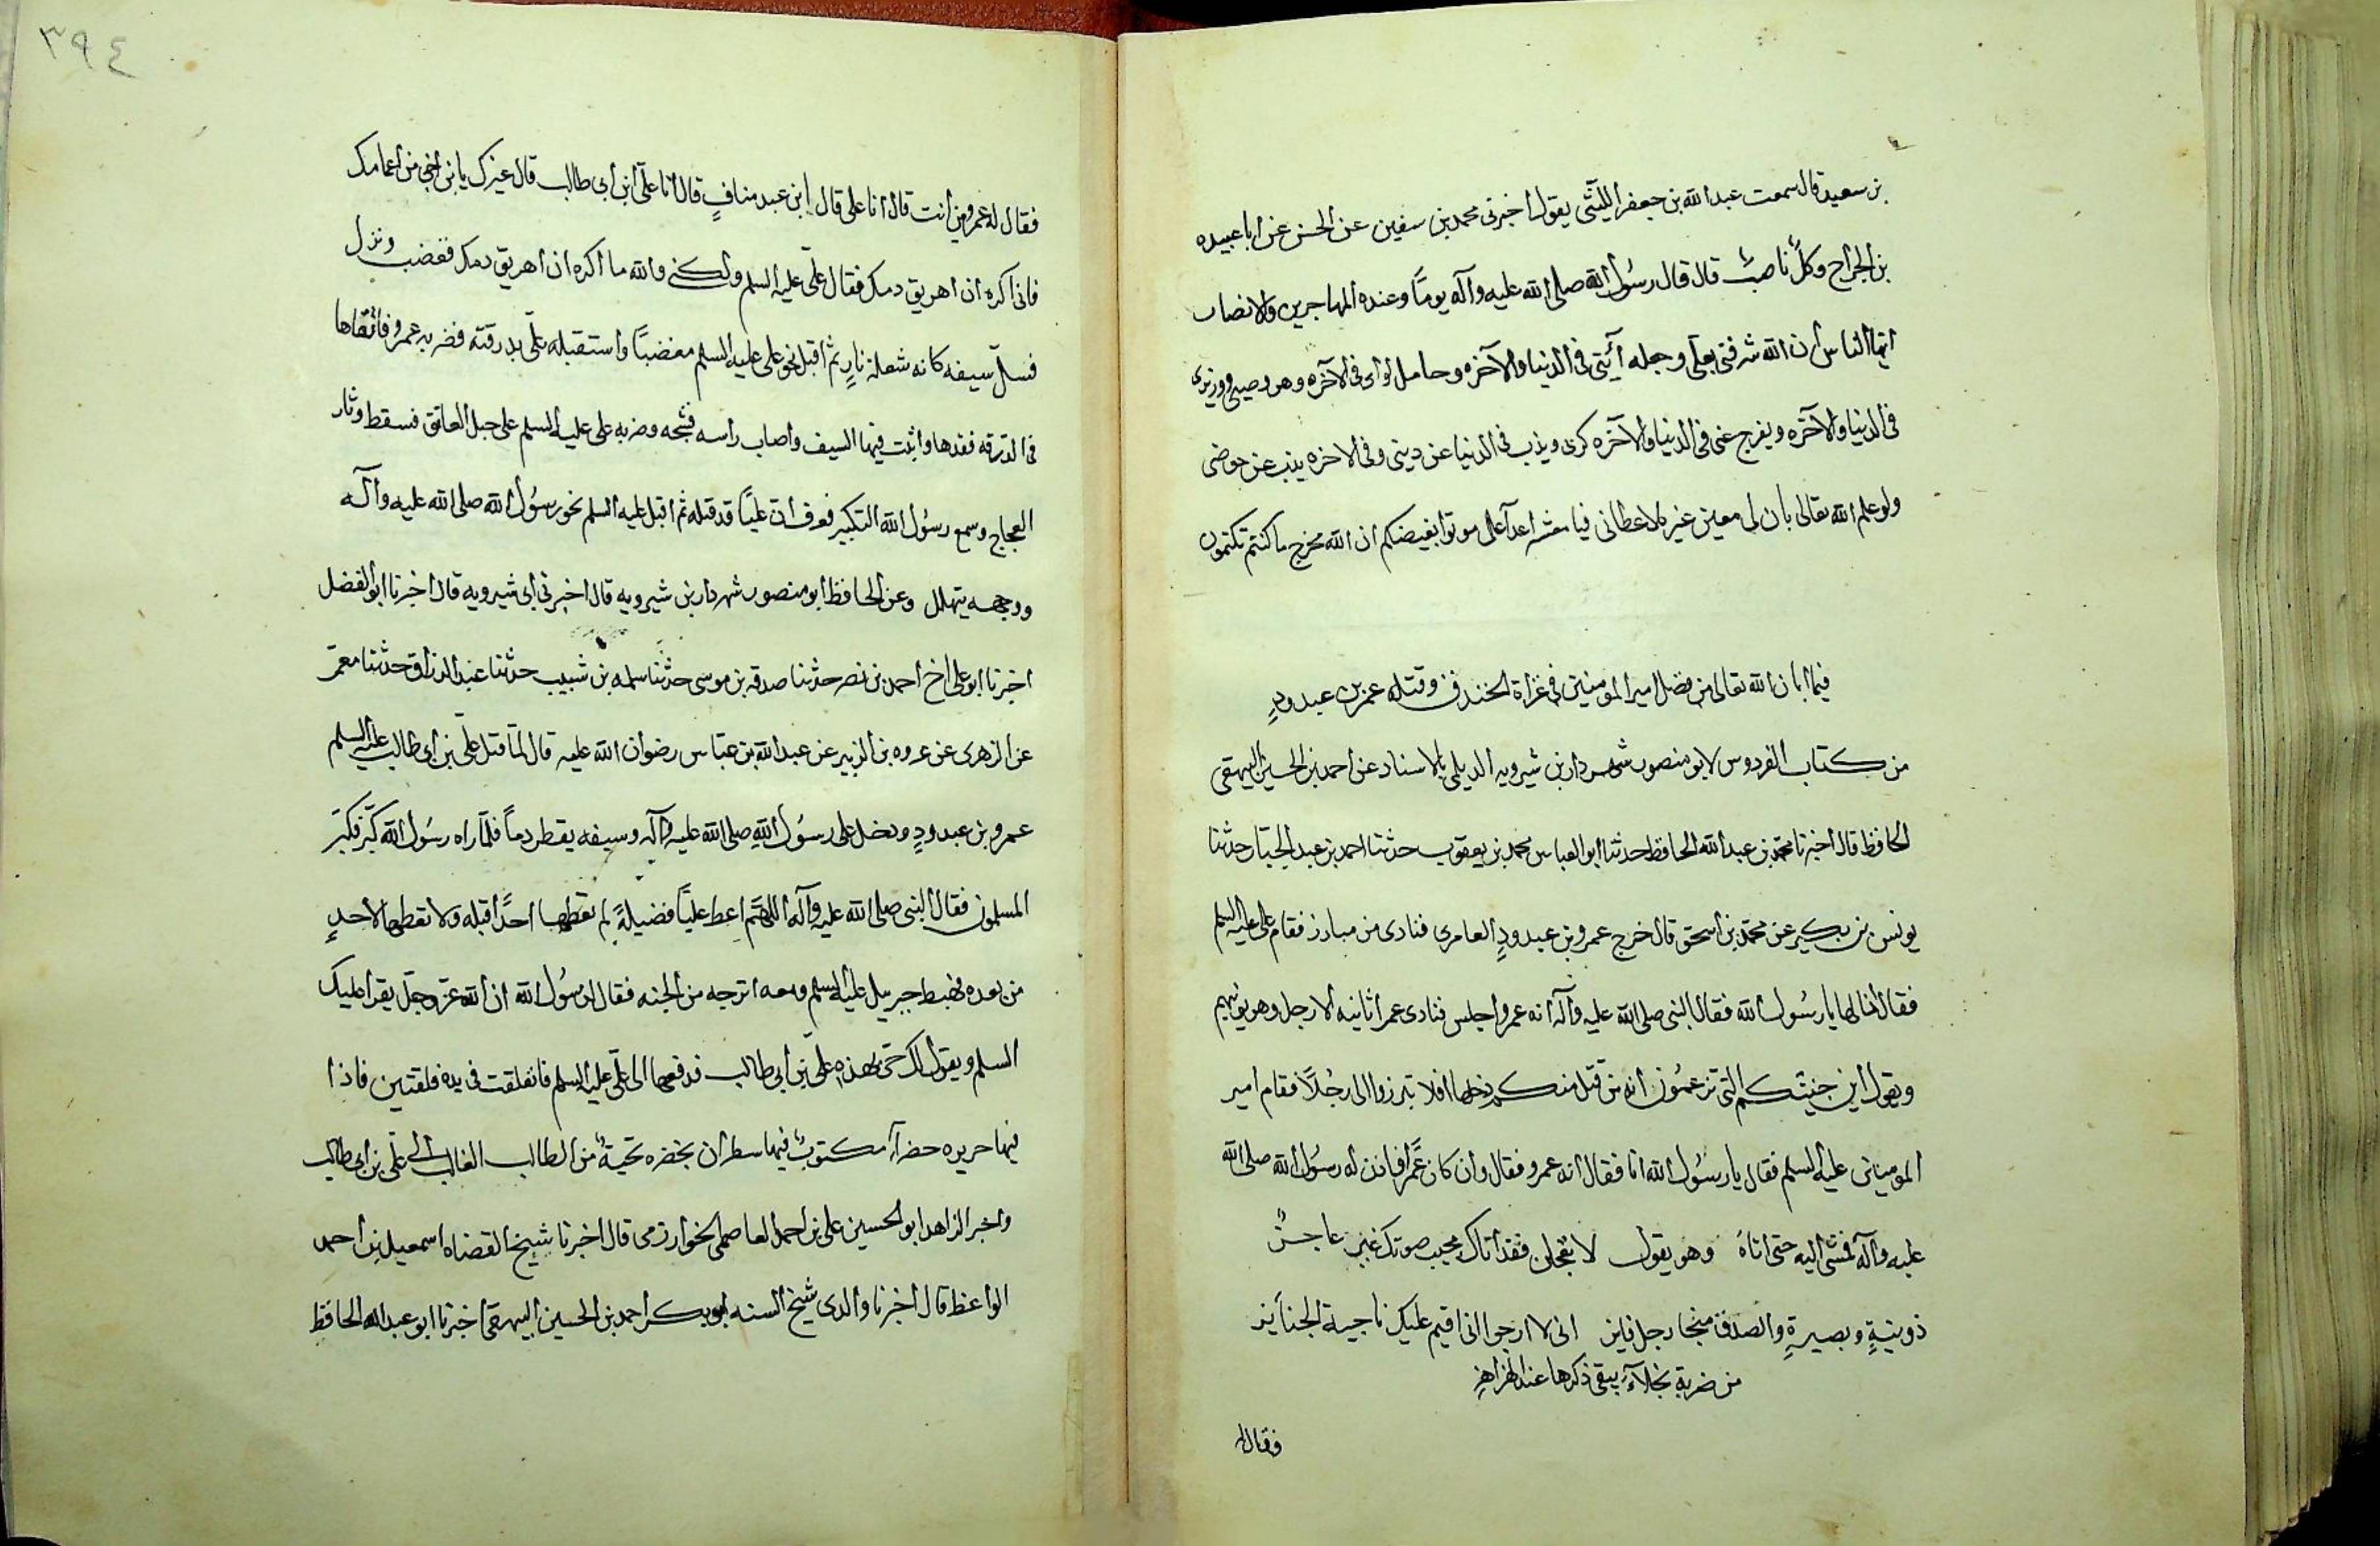 بن سعيد قال سمعت عبد الله بن جعفر الليثى يقول اخبرنى محمد بن سفين عن الحسن عن ابا عبيده
بن الجراح وكلٌ ناصبٌ قال قال رسُول الله صلى الله عليه وآله يومًا وعنده المهاجرين والانصار
ايها الناس ان الله شرفنى بعلى وجعله آيتى فى الدنيا والآخره وحامل لوائ فى الآخره وهو وصيى ووزيرى
فى الدنيا والآخره ويفرج عنى فى الدنيا والآخره كربى ويذب فى الدنيا عن دينى وفى الاخره يذب عن حوضى
ولو علم الله تعالى بان لى معين غيره لاعطانى فيا معشر اعدآ على موتوا بغيضكم ان الله مخرج ما كنتم تكتمون
فيما ابان الله تعالى من فضل امير المومنين فى غزاة الخندق وقتله عمر بن عبد ودٍ
من كتاب الفردوس لابو منصور شهردار بن شيرويه الديلمى بالاسناد عن احمد بن الحسين البيهقى
الحافظ قال اخبرنا محمد بن عبد الله الحافظ حدثنا ابو العباس محمد بن يعقوب حدثنا احمد بن عبد الجبار حدثنا
يونس بن بكير عن محمد بن اسحق قال خرج عمرو بن عبد ودٍ العامرى فنادى من مبارز فقام على عليه السلم
فقال انا لها يا رسُول الله فقال النبى صلى الله عليه وآله انه عمرو اجلس فنادى عمرا ثانيه الا رجل وهو يونبهم
ويقول اين جنتكم التى تزعمُون انه من قتل منكم دخلها افلا تبرزوا الى رجُلاً فقام امير
المومنين عليه السلم فقال يا رسُول الله انا فقال انه عمرو فقال وان كان عَمرًا فاذن له رسُول الله صلى الله
عليه وآله فمشى اليه حتى اتاهُ وهو يقول لا تعجلن فقد اتاك مجيب صوتك غير عاجزُ
ذو نيةٍ وبصيرةٍ والصدق منجا رجل فايز انى لا ارجوا انى اقيم عليك ناجية الجنايز
من ضربة نجلآءِ يبقى ذكرها عند الهزاهزِ
فقال له
٣٩٤
فقال له عمرو من انت قال انا على قال ابن عبد منافٍ قال انا على ابن ابى طالب قال غيرك يا بن اخى من اعمامك
فانى اكره ان اهريق دمك فقال على عليه السلم ولكنى والله ما اكره ان اهريق دمك فغضب ونزل
فسلّ سيفه كانه شعلة نارٍ ثم اقبل نحو على عليه السلم مغضبًا واستقبله على بدرقته فضربه عمرو فاتقاها
فى الدرقه فقدها واثبت فيها السيف واصاب راسه فشجه وضربه على عليه السلم على حبل العاتق فسقط وثار
العجاج وسمع رسُول الله التكبير فعرف ان عليًا قد قتله ثم اقبل عليه السلم نحو رسُول الله صلى الله عليه وآله
ووجهه يتهلل وعن الحافظ ابو منصور شهردار بن شيرويه قال اخبرنى ابى شيرويه قال اخبرنا ابو الفضل
اخبرنا ابو على اخ احمد بن نصر حدثنا صدقه بن موسى حدثنا سلمه بن شبيب حدثنا عبد الرزاق حدثنا معمّر
عن الزهرى عن عروه بن الزبير عن عبد الله بن عباس رضوان الله عليه قال لما قتل على بن ابى طالب عليه السلم
عمرو بن عبد ودٍ ودخل على رسُول الله صلى الله عليه وآله وسيفه يقطر دماً فلما راه رسُول الله كبّر فكبّر
المسلمون فقال النبى صلى الله عليه وآله اللهم اعط عليًا فضيلةً لم تعطها احدًا قبله ولا تعطها لاحدٍ
من بعده فهبط جبريل عليه السلم ومعه اترجه من الجنه فقال لرسُول الله ان الله عز وجل يقرا عليك
السلم ويقول لك حىّ بهذه على بن ابى طالب فدفعها الى على عليه السلم فانفلقت فى يده فلقتين فاذا
فيها حريره خضرآء مكتوبٌ فيها سطران بخضره تحيةٌ من الطالب الغالب الى على بن ابى طالب
واخبر الزاهد ابو الحسين على بن احمد العاصمى الخوارزمى قال اخبرنا شيخ القضاه اسمعيل بن احمد
الواعظ قال اخبرنا والدى شيخ السنه ابو بكر احمد بن الحسين البيهقى اخبرنا ابو عبد الله الحافظ